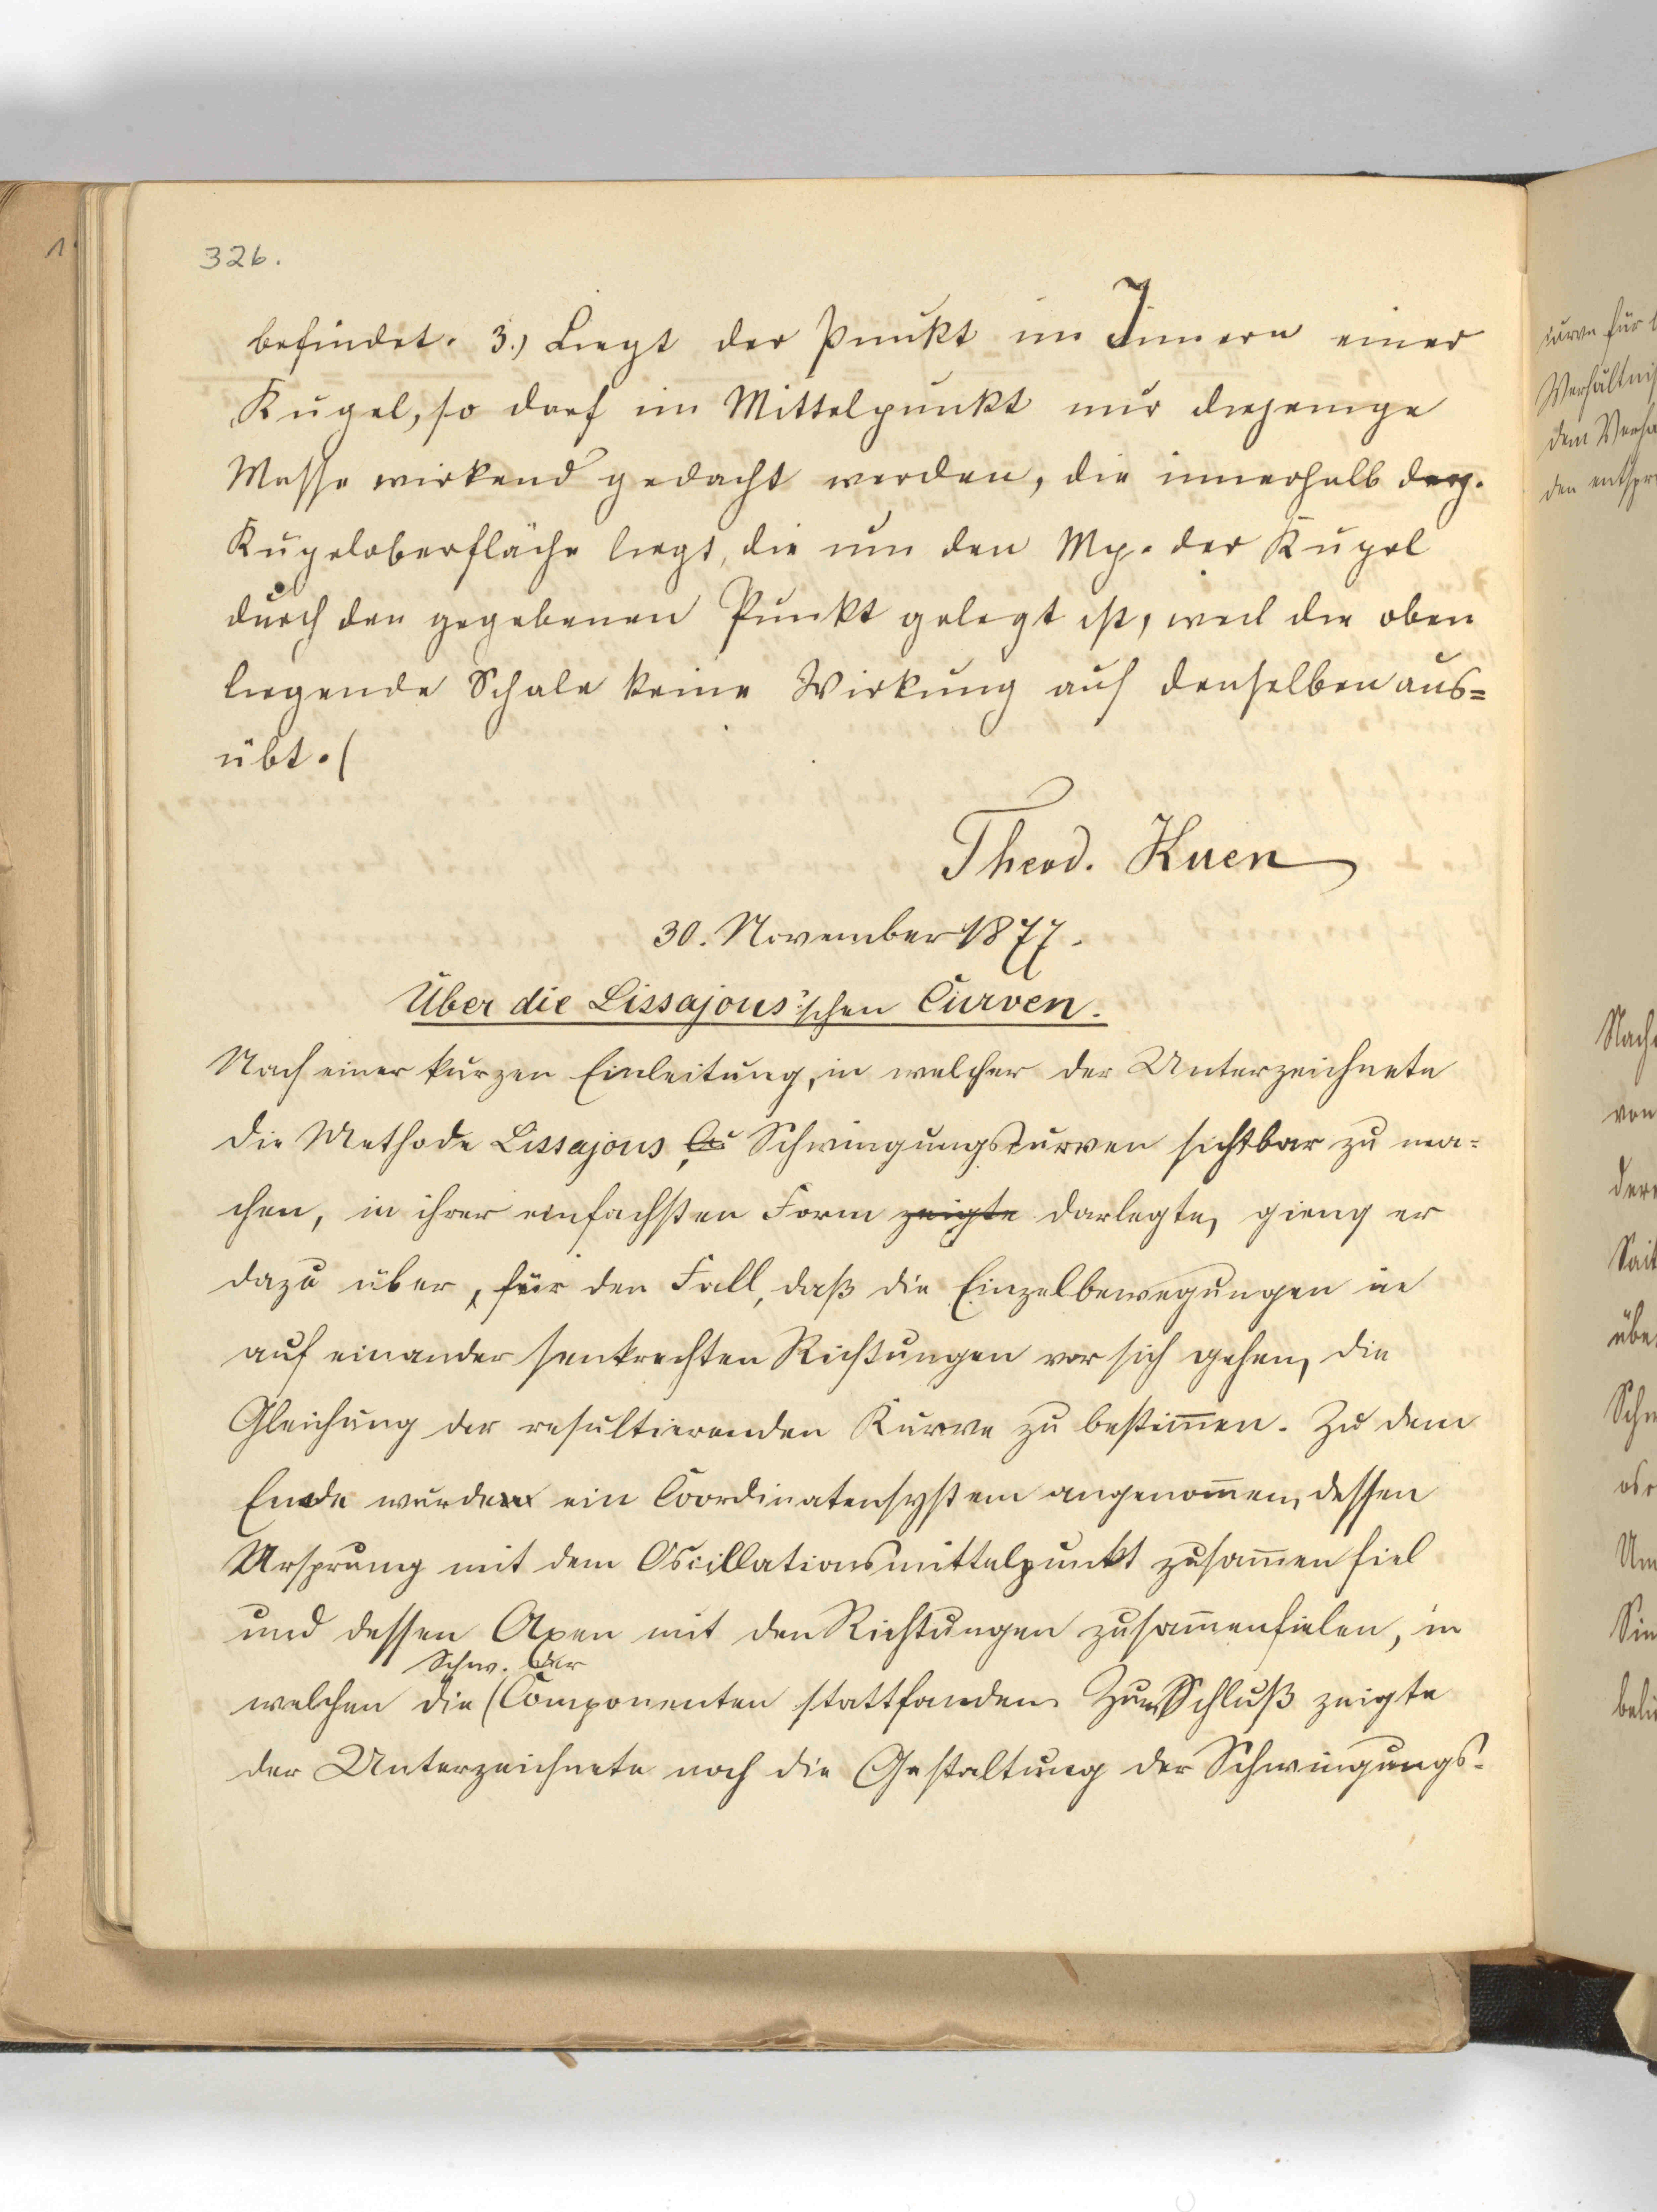 326.
befindet. 3.) Liegt der Punkt im Innern einer
Kugel, so darf im Mittelpunkt nur diejenige
Masse wirkend gedacht werden, die innerhalb derj.
Kugeloberfläche liegt, die um den Mp. der Kugel
durch den gegebenen Punkt gelegt ist, weil die oben
liegende Schale keine Wirkung auf denselben aus=
übt.(
Theod. Kuen
30. November 1877.
Über die Lissajous'schen Curven.
Nach einer kurzen Einleitung, in welcher der Unterzeichnete
die Methode Lissajous Schwingungscurven sichtbar zu ma=
chen, in ihrer einfachsten Form zeigte darlegte, gieng er
dazu über, für den Fall, daß die Einzelbewegungen in
auf einander senkrechten Richtungen vor sich gehen, die
Gleichung der resultierenden Kurve zu bestim̅en. Zu dem
Ende wurden ein Coordinatensystem angenom̅en, dessen
Ursprung mit dem Oscillationsmittelpunkt zusam̅en fiel
und dessen Axen mit den Richtungen zusam̅enfielen, in
Schw. der
welchen die (Componenten stattfanden. Zum Schluß zeigte
der Unterzeichnete noch die Gestaltung der Schwingungs=
curve für
Verhältnis
dem Verhä
den entspr
Nach
von
dere
Sait
über
Schw
Um
Sin